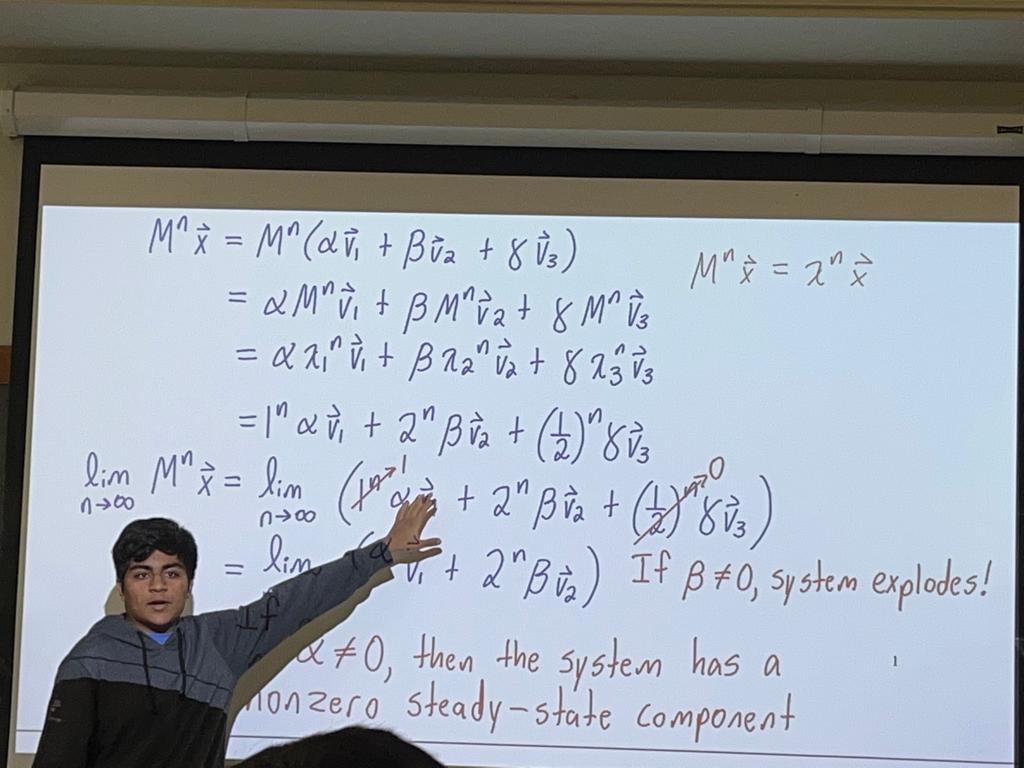 Mⁿx⃗ = Mⁿ(αv⃗₁ + βv⃗₂ + γv⃗₃)
Mⁿx⃗ = λⁿx⃗
= αMⁿv⃗₁ + βMⁿv⃗₂ + γMⁿv⃗₃
= αλ₁ⁿv⃗₁ + βλ₂ⁿv⃗₂ + γλ₃ⁿv⃗₃
= 1ⁿαv⃗₁ + 2ⁿβv⃗₂ + (1/2)ⁿγv⃗₃
lim n→∞ Mⁿx⃗ = lim n→∞ (1ⁿ→1 αv⃗₁ + 2ⁿβv⃗₂ + (1/2)ⁿ→0 γv⃗₃)
= lim (αv⃗₁ + 2ⁿβv⃗₂) If β≠0, system explodes!
If α≠0, then the system has a
nonzero steady-state component
1